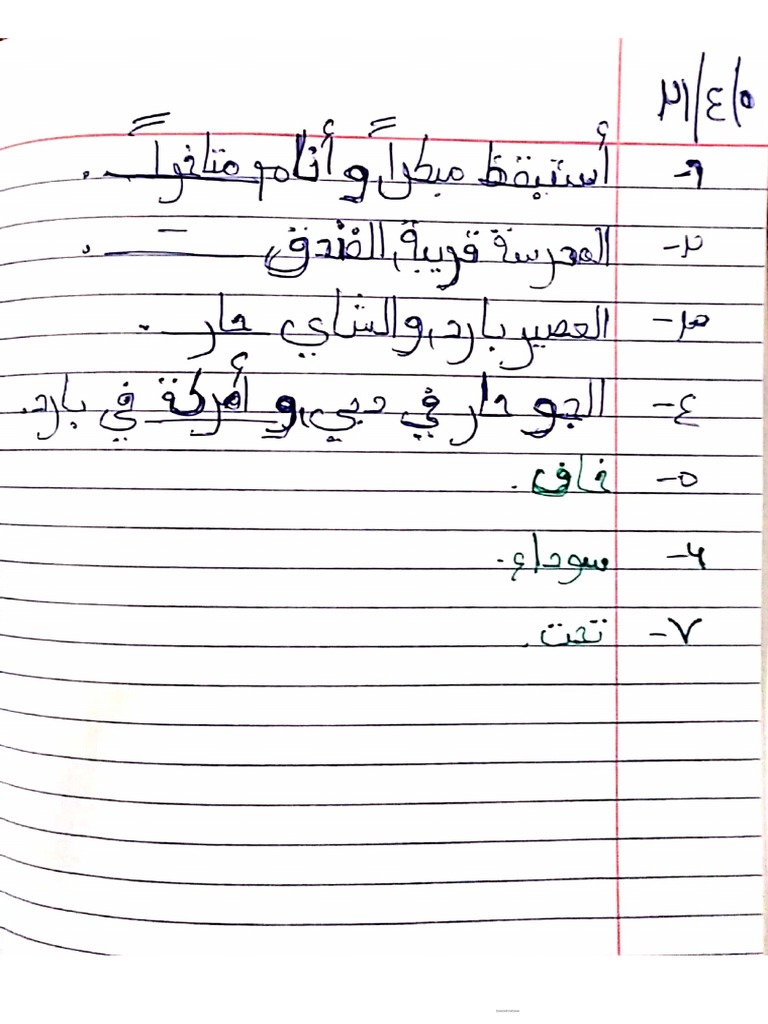 ٣١/٤/٥
١- أستيقظ مبكراً و أنام متاخراً .
٢- المدرسة قريبة، الفندق .
٣- العصير بارد، والشاي حار .
٤- الجو حار في دبي، و أمركة في بارد.
٥- خاف .
٦- سوداء .
٧- تحت .